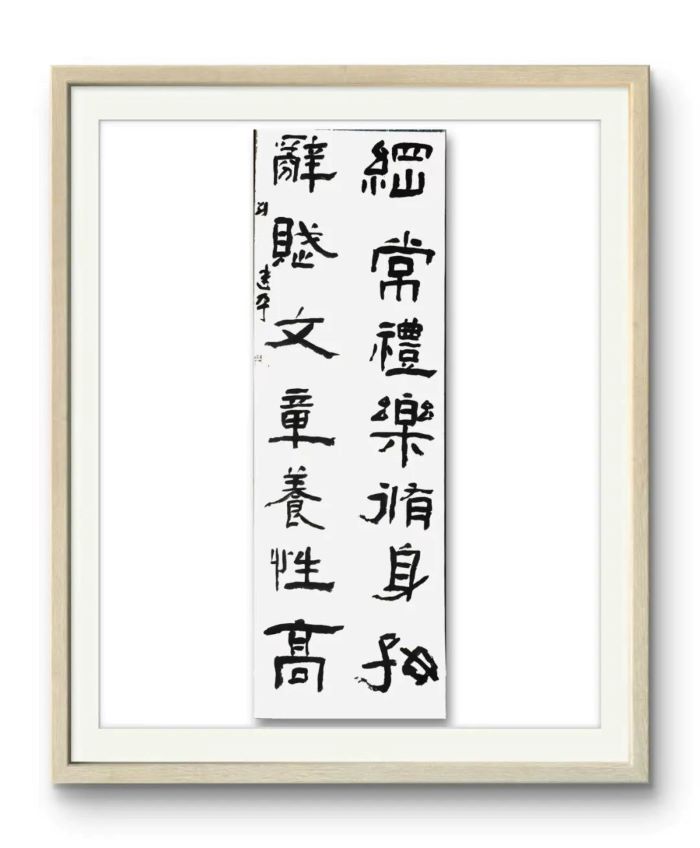 綱常禮樂脩身好
辭賦文章養性高
建平